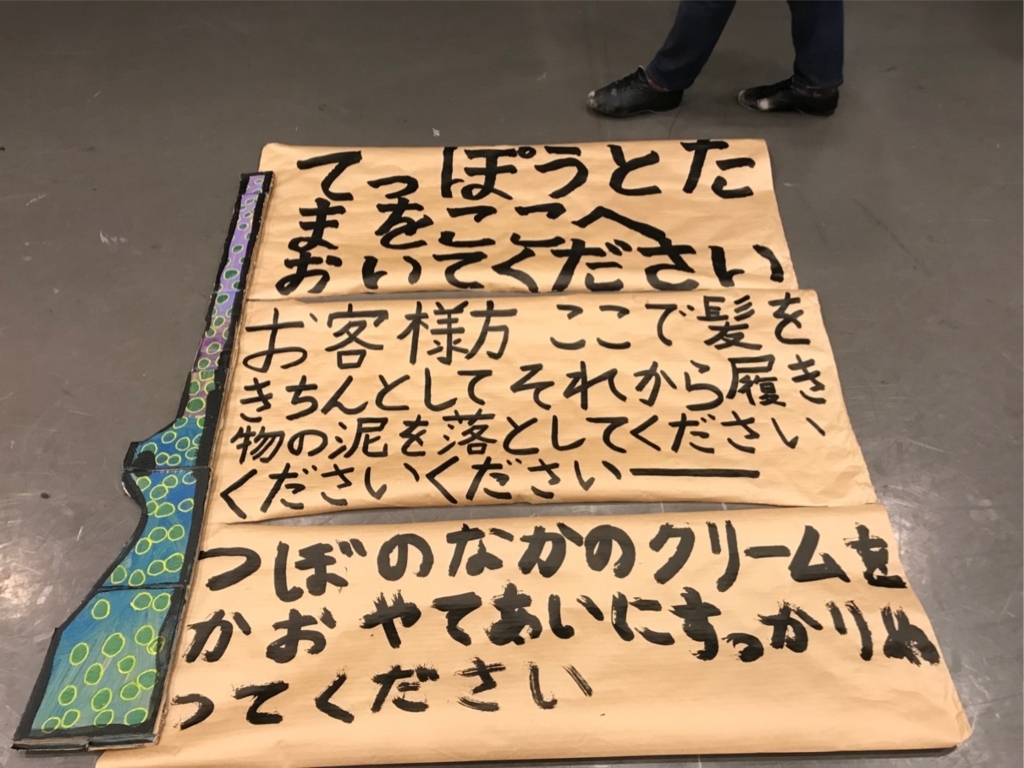 てっぽうとた
まをここへ
おいてください
お客様方 ここで髪を
きちんとして それから履き
物の泥を落としてください
くださいください――
つぼのなかのクリームを
かお やてあいにすっかりぬ
ってください